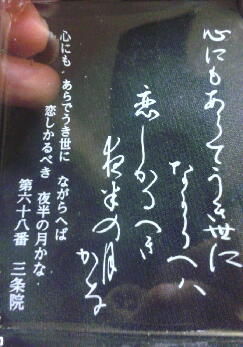 心にもあらでうき世に
ながらへハ
恋しかるへき
夜半の月
かな
心にも あらでうき世に ながらへば
恋しかるべき 夜半の月かな
第六十八番 三条院